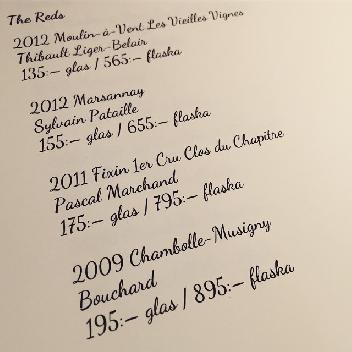 The Reds
2012 Moulin-à-Vent Les Vieilles Vignes
Thibault Liger-Belair
135:- glas / 565:- flaska
2012 Marsannay
Sylvain Pataille
155:- glas / 655:- flaska
2011 Fixin 1er Cru Clos du Chapitre
Pascal Marchand
175:- glas / 795:- flaska
2009 Chambolle-Musigny
Bouchard
195:- glas / 895:- flaska